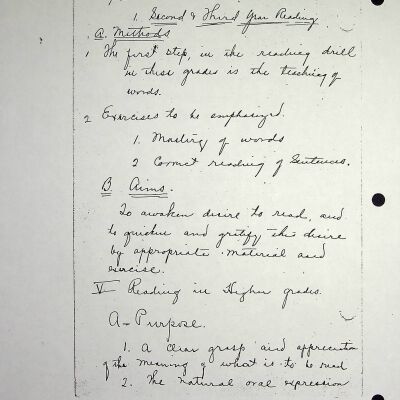 1. Second & Third Year Reading
A. Methods
1 The first step, in the reading drill
in these grades is the teaching of
words.
2 Exercises to be emphasized.
1. Mastery of words
2 Correct reading of Sentences.
B Aims.
To awaken desire to read, and
to quicken and gratify the desire
by appropriate material and
exercise.
V Reading in Higher grades.
A- Purpose.
1. A clear grasp and appreciation
of the meaning of what is to be read
2. The natural oral expression